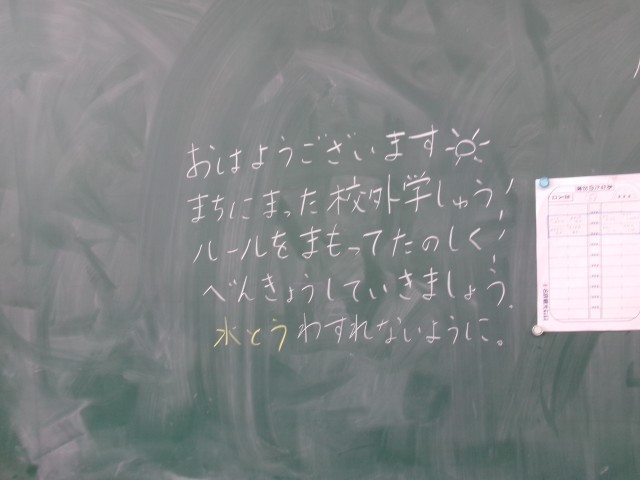 おはようございます
まちにまった校外学しゅう!
ルールをまもってたのしく!
べんきょうしていきましょう。
水とうわすれないように。